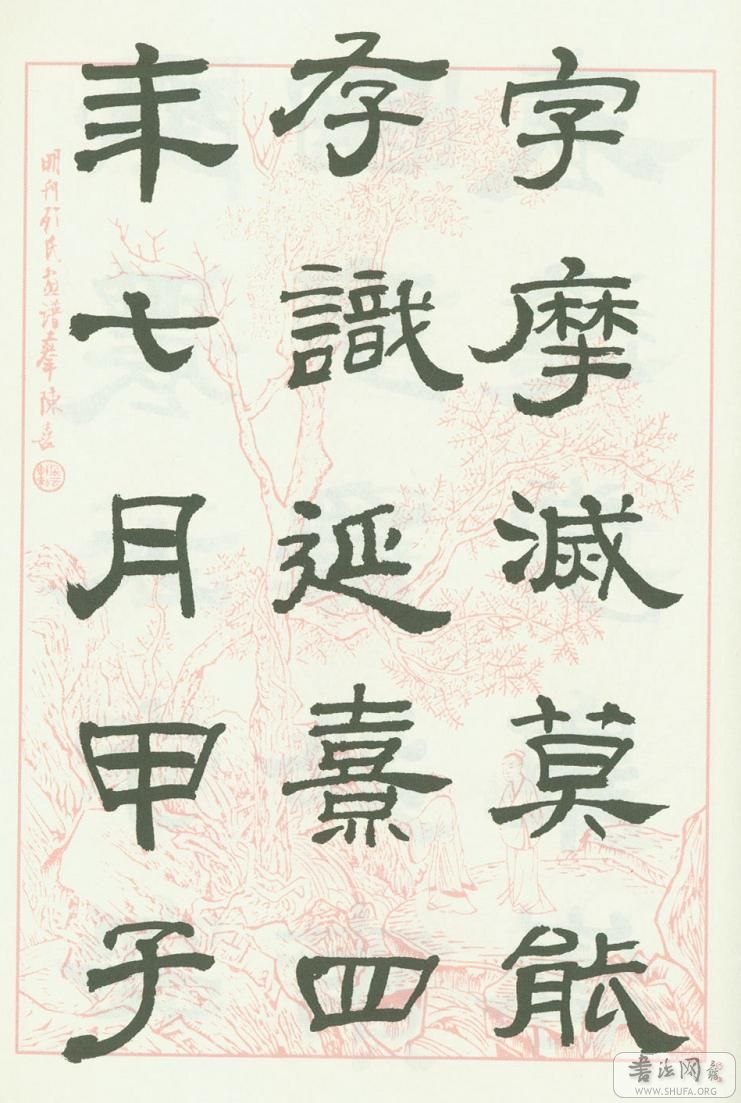 字摩滅莫能
存識延熹四
年七月甲子
明刊顧氏畫譜摹陳喜
書法网
WWW.SHUFA.ORG